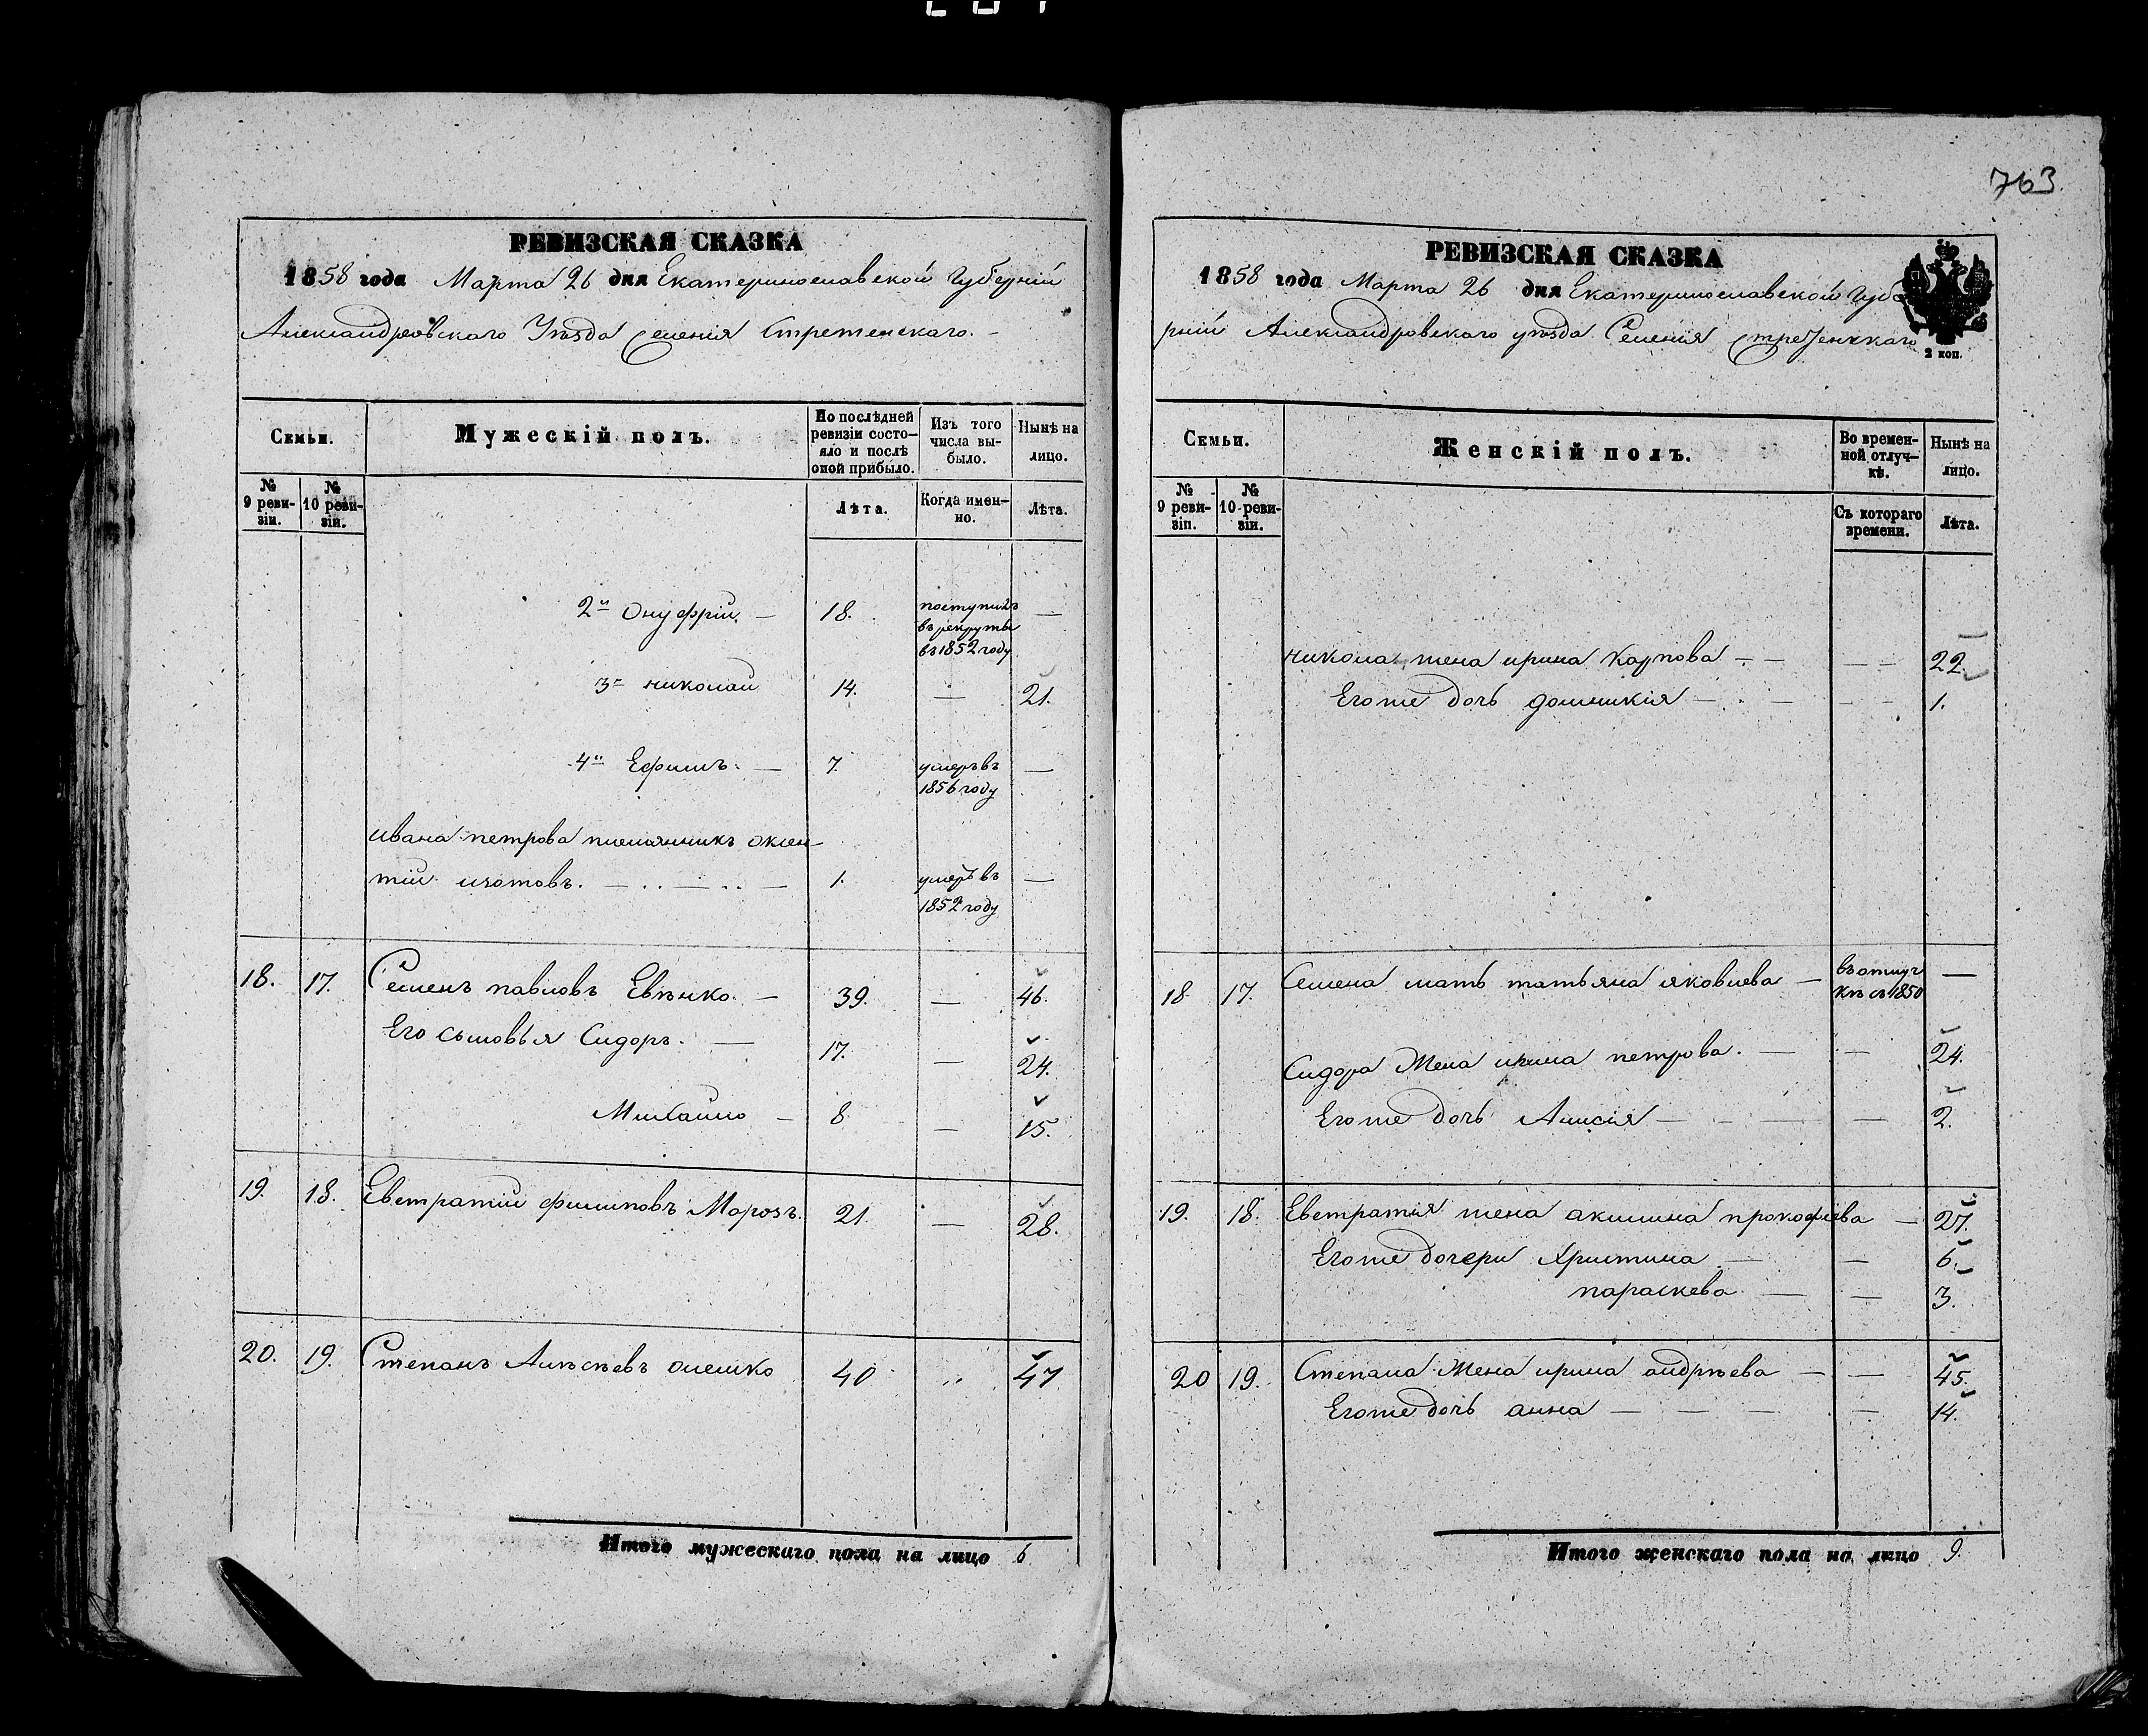 763.
РЕВИЗСКАЯ СКАЗКА
1858 года Марта 26 дня Екатеринославской Губерніи
Александровскаго Уѣзда Селенія Стретенскаго.
Семьи.
Мужескій полъ.
По послѣдней ревизіи состо-
яло и послѣ
оной прибыло.
Изъ того
числа вы-
было.
Нынѣ на
лицо.
№
9 реви-
зіи.
№
10 реви-
зіи.
Лѣта.
Когда имен-
но.
Лѣта.
2й Онуфрій. — 18. поступилъ —
въ рекруты
въ 1852 году
3й николай 14. — 21.
4й Ефимъ. — 7. умеръ въ —
1856 году
ивана петрова племянникъ оксен-
тій изотовъ. — 1. умеръ въ —
1852 году
18. 17. Семенъ павловъ Евѣнко. — 39. — 46.
Его сыновья Сидоръ. — 17. — 24.
Михайло — 8 — 15.
19. 18. Евстратій филиповъ Морозъ. 21. — 28.
20. 19. Степанъ Алѣсѣевъ олешко 40 „ 47
Итого мужескаго пола на лицо 6
РЕВИЗСКАЯ СКАЗКА
1858 года Марта 26 дня Екатеринославской Губе
рніи Александровскаго уѣзда Селенія Стретенскаго
2 коп.
Семьи.
Женскій полъ.
Во времен-
ной отлуч-
кѣ.
Нынѣ на
лицо.
№
9 реви-
зіи.
№
10 реви-
зіи.
Съ котораго
времени.
Лѣта.
никола жена ирина Карпова — — 22.
Его же дочь домникія — — 1.
18 17. Семена мать татьяна яковлева — въ отлуч —
кѣ съ 1850
Сидора Жена ирина петрова. — — 24.
Его же дочь Анисія — — 2.
19. 18. Евстратія жена акилина прокофіева — 27.
Его же дочери Христина — — 6.
параскева — — 3.
20 19. Степана Жена ирина андрѣева — — 45.
Его же дочь анна — — 14.
Итого женскаго пола на лицо 9.